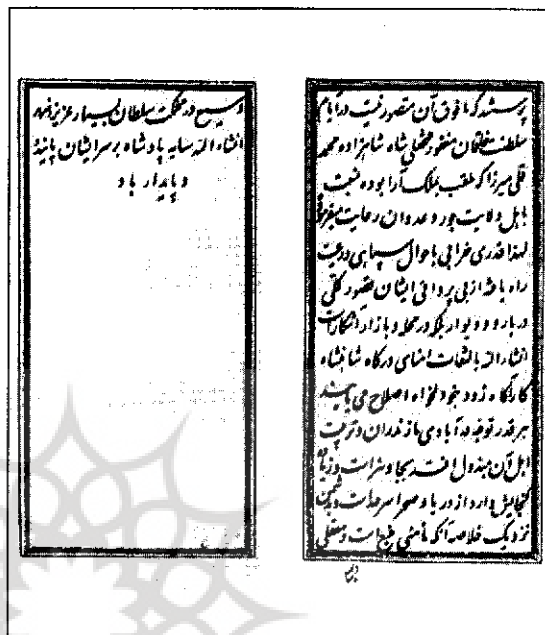 پرستند که مافوق آن متصور نیست در ایام
سلطنت خاقان مغفور فتحعلی شاه شاهزاده محمد
قلی میرزا که ملقب بملک آرا بوده نسبت
باهل ولایت جور و عدوان رعایت میفرموده
لهذا قدری خرابی باحوال سپاهی و رعیت
راه یافته از بی پروائی ایشان قصور کلی
در بار و و دیوار بلکه در محله و بازار آشکار است
انشاء الله بالتفات امنای درگاه شاهنشاه
کارآگاه زود بخود لخواه اصلاح می یابند
هر قدر توجه به آبادی مازندران و تربیت
اهل آن مبذول افتد بجا و سزاست و زیاده
گنجایش دارد از دریا و صحرا سرحدات
نزدیک خلاصه آنکه مأمنی است و معقلی
وسیع در مملکت سلطان بسیار عزیز
انشاء الله سایه پادشاه بر سر ایشان پاینده
و پایدار باد